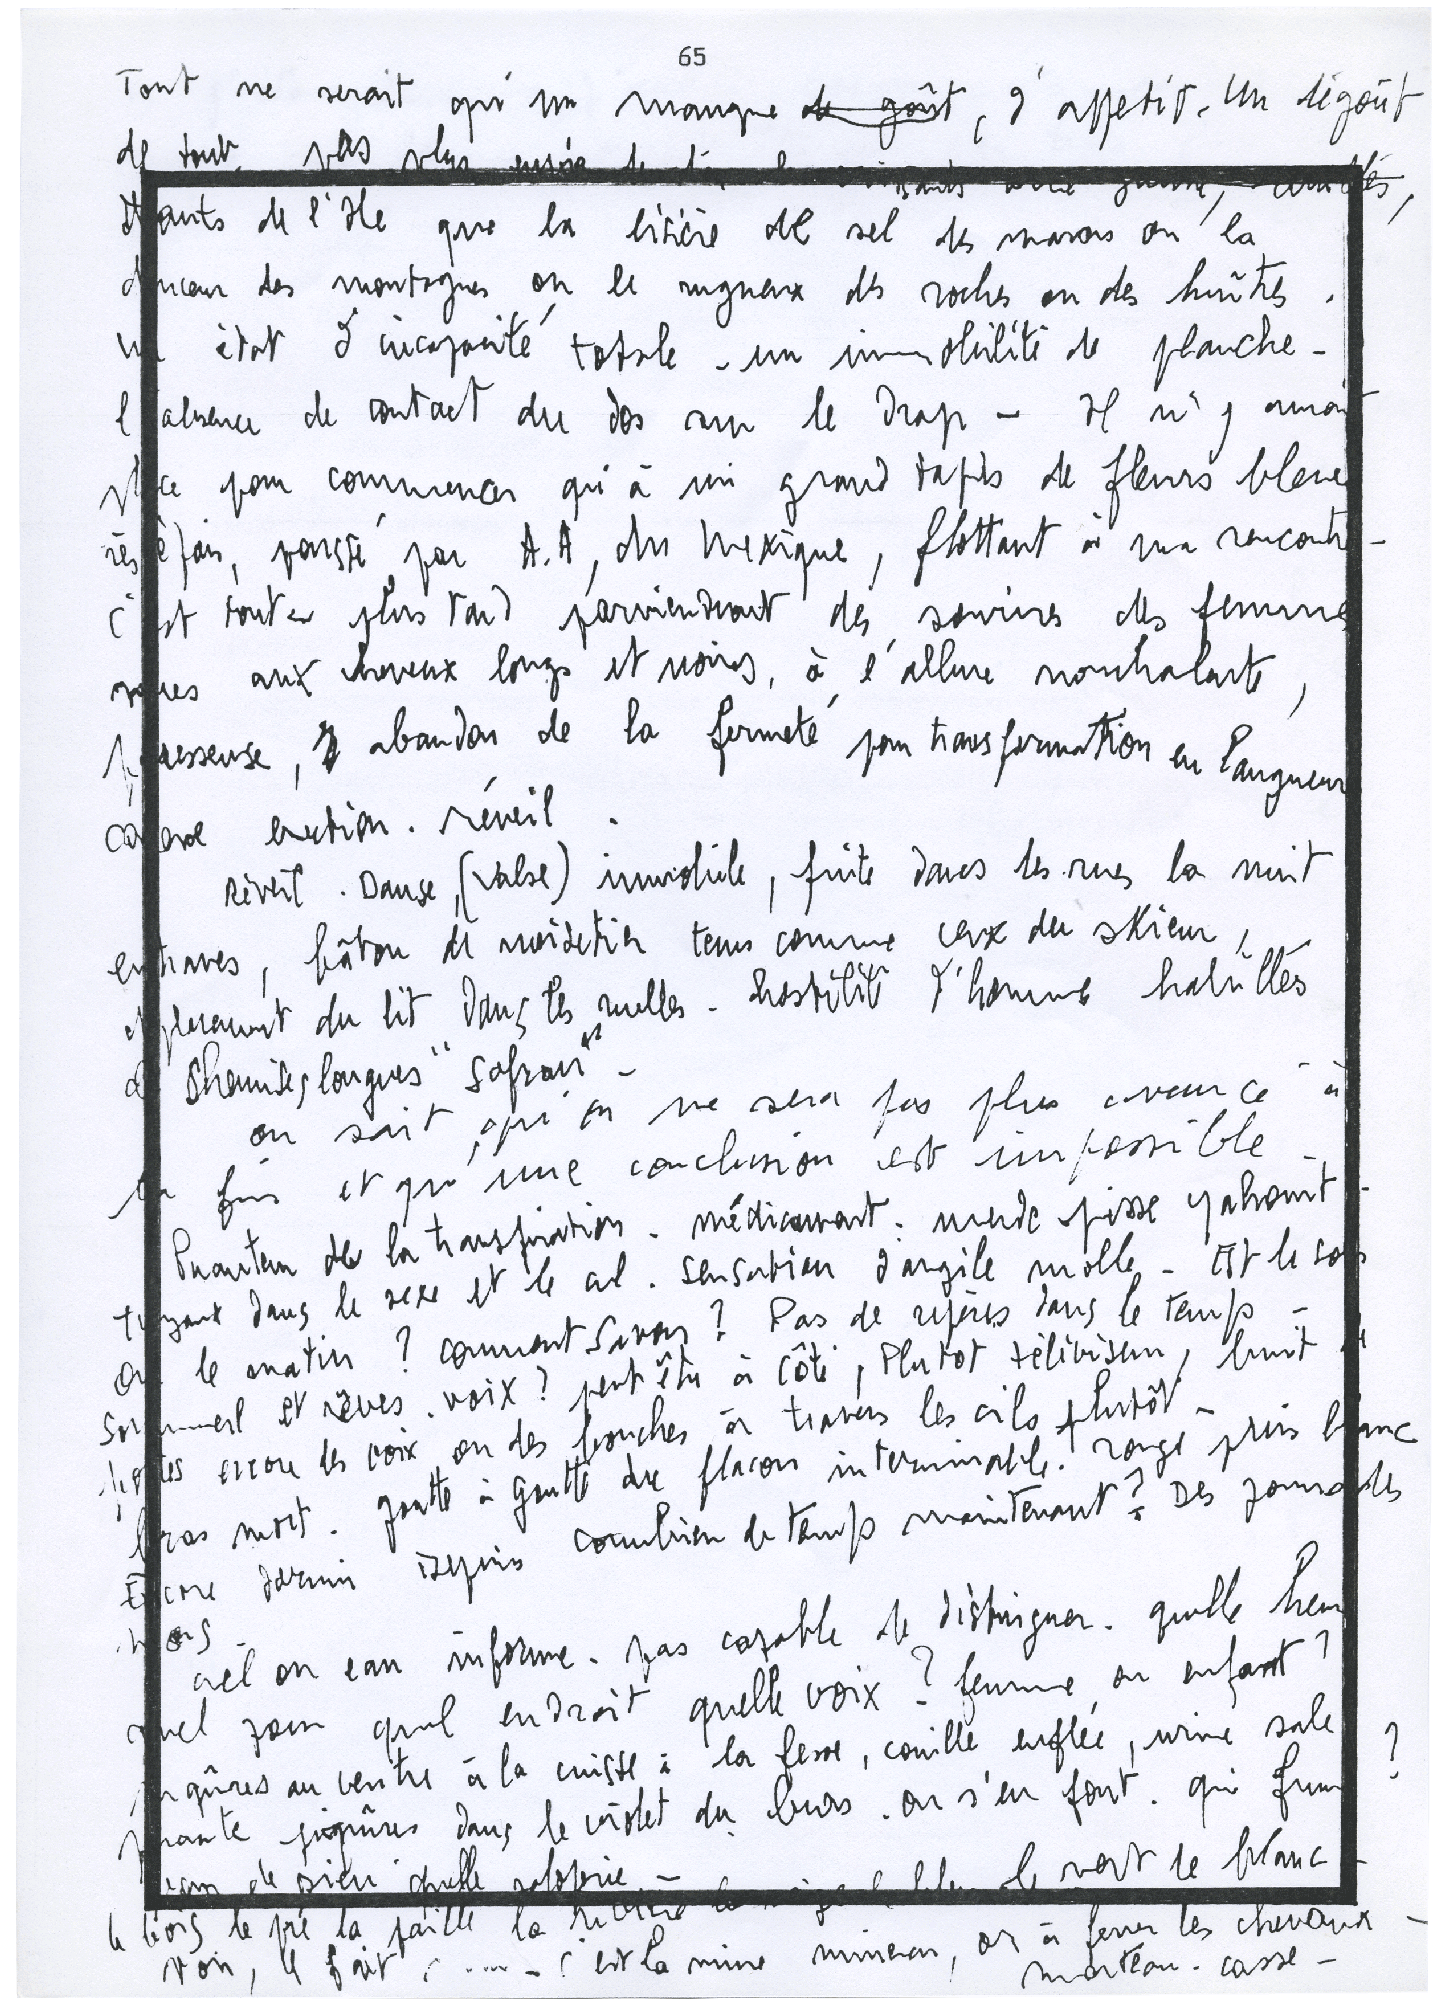 65
Tout ne serait qu'un manque de goût, d'appetit. Un dégoût
de tout, pas plus
de l'Ile que la litière de sel des marais ou la
douceur des montagnes ou le rugueux des roches ou des huîtres.
Un état d'incapacité totale - un immobilité de planche -
l'absence de contact du dos sur le drap - Il n'y aurait
place pour commencer qu'à un grand tapis de fleurs bleue
très épais, poussé par A.A, du Mexique, flottant à ma rencontre -
C'est tout plus tard parviendront des sourires des femmes
aux cheveux longs et noirs, à l'allure nonchalante,
paresseuse, d abandon de la fermeté pour transformation en langueur
érection. réveil.
Réveil. Danse, (valse) immobile, fuite dans les rues la nuit
entraves, bâton de noisetier tenus comme ceux du skieur,
du lit dans les ruelles - hostilité d'homme habillés
de chemises longues "safran" -
on sait qu'on ne sera pas plus avancé à
la fin et qu'une conclusion est impossible -
Puanteur de la transpiration. médicament. merde pisse
tuyaux dans le sexe et le cul. sensation d'argile molle - Est le soir
ou le matin ? comment savoir ? Pas de repères dans le temps -
sommeil et rêves. voix ? peut être à côté, Plutot téléviseur, bruit de
portes encore des voix ou des bouches à travers les cils plutôt -
bras mort. goutte à goutte du flacon interminable. rouge puis blanc
Encore dormir depuis combien de temps maintenant ? Des jours des
mois
ciel ou eau informe. pas capable de distinguer. quelle heure
quel jour quel endroit quelle voix ? femme ou enfant ?
piqûres au ventre à la cuisse à la fesse, couille enflée, urine sale
puante piqûres dans le violet du bras. on s'en fout. qui fume ?
quelle saloperie - le vert le blanc -
le bois le pré la paille la
voir, il fait ..... - c'est la mine mineur, or à ferrer les chevaux -
marteau. casse -